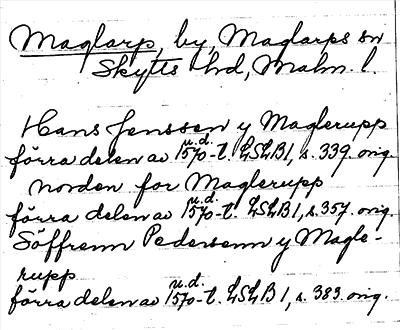 Maglarp, by, Maglarps sn
Skytts hd, Malm. l.
Hans Jenssen y Maglerupp
n.d.
förra delen av 1570-t. LSLB1, s. 339. orig.
norden for Maglerupp
n.d.
förra delen av 1570-t. LSLB1, s. 357. orig.
Söffrenn Pedersenn y Magle-
rupp
n.d.
förra delen av 1570-t. LSLB1, s. 383. orig.